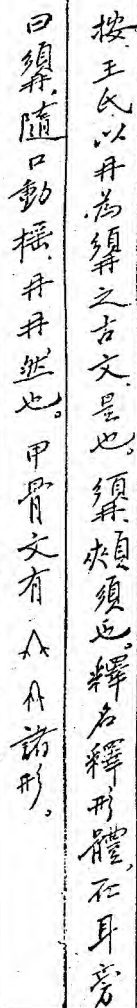 按、王氏以冄為𩓾之古文、是也。𩓾、頰須也。釋名釋形體、在耳旁
曰𩓾、隨口動搖、冄冄然也。甲骨文有諸形。